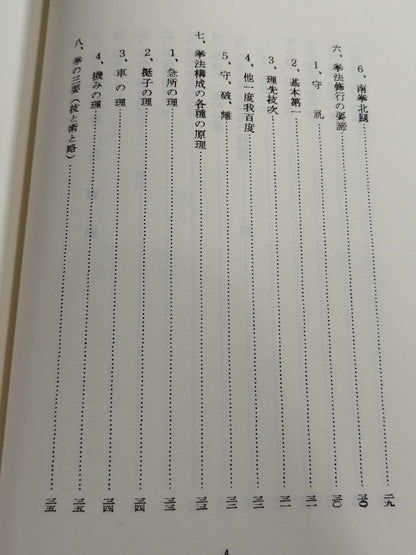 6、南拳北腿……二九
六、拳法修行の要諦……三〇
1、守　礼……三〇
2、基本第一……三一
3、理先技次……三一
4、他一度我百度……三二
5、守、破、離……三二
七、拳法構成の各種の原理……三三
1、急所の理……三三
2、梃子の理……三四
3、車の理……三四
4、機みの理……三五
八、拳の三要（技と術と略）……三五
4